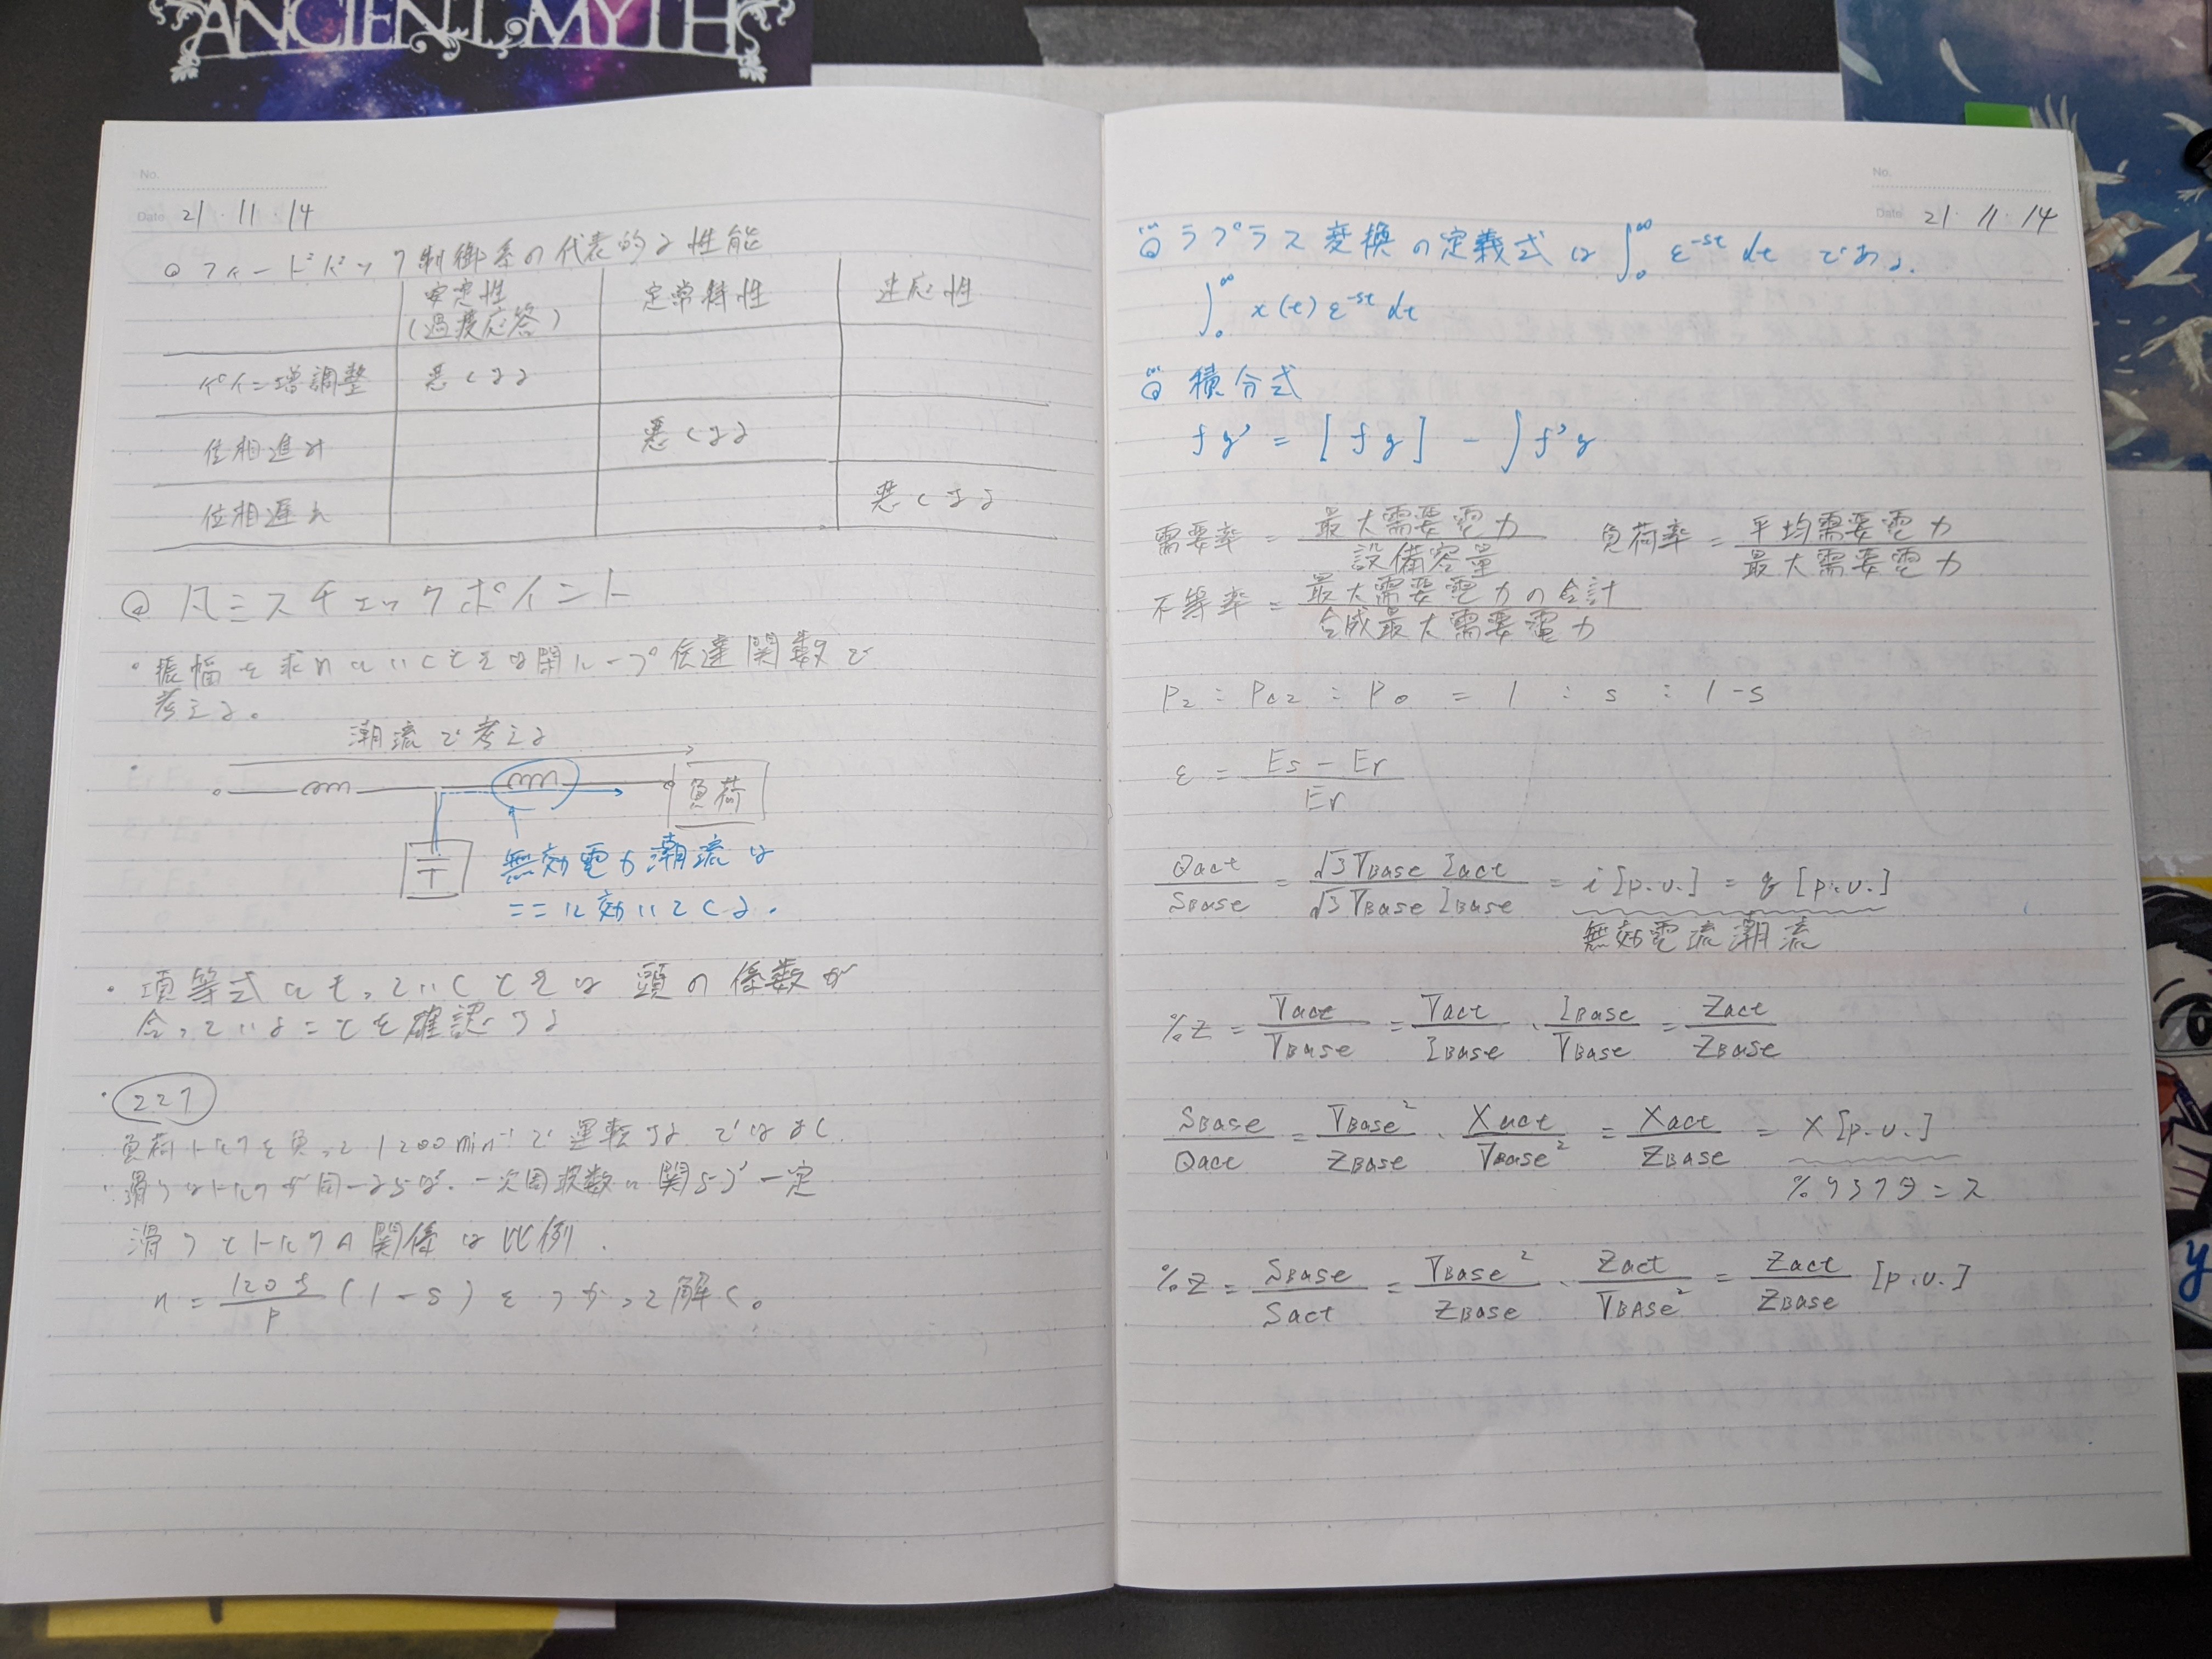 ANCIENT MYTH
No.
Date 21・11・14
フィードバック制御系の代表的な性能
安定性
(過渡応答)
定常特性
速応性
ゲイン増調整 悪くなる
位相進み 悪くなる
位相遅れ 悪くなる
凡ミスチェックポイント
・振幅を求めたいときは閉ループ伝達関数で
考える。
潮流で考える
負荷
無効電力潮流は
ここに効いてくる.
・項等式にもっていくときは頭の係数が
合っていることを確認する
・227
負荷トルクを負って1200min⁻¹で運転する ではなく
滑りはトルクが同一ならば、一次周波数に関らず一定
滑りとトルクの関係は比例.
n = 120f/p (1-s) をつかって解く。
No.
Date 21・11・14
ラプラス変換の定義式は ∫₀^∞ ε^{-st} dt である.
∫₀^∞ x(t) ε^{-st} dt
積分式
fg' = [fg] - ∫f'g
需要率 = 最大需要電力/設備容量 負荷率 = 平均需要電力/最大需要電力
不等率 = 最大需要電力の合計/合成最大需要電力
P₂ : Pc₂ : P₀ = 1 : s : 1-s
ε = (Es - Er)/Er
Qact/SBase = √3VBase Iact/√3VBase IBase = i [p.u.] = q [p.u.]
無効電流潮流
%Z = Vact/VBase = Vact/IBase ・ IBase/VBase = Zact/ZBase
SBase/Qact = VBase²/ZBase ・ Xact/VBase² = Xact/ZBase = X [p.u.]
%リアクタンス
%Z = SBase/Sact = VBase²/ZBase ・ Zact/VBASe² = Zact/ZBase [p.u.]
y